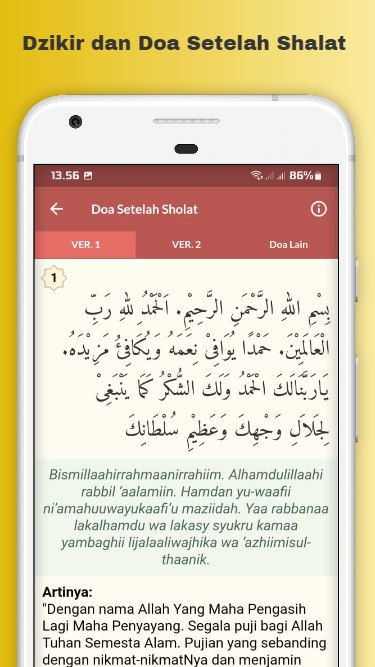 Dzikir dan Doa Setelah Shalat
13.56 86%
Doa Setelah Sholat
VER. 1 VER. 2 Doa Lain
1
بِسْمِ اللهِ الرَّحْمَنِ الرَّحِيْمِ. اَلْحَمْدُ لِلهِ رَبِّ
الْعَالَمِيْنَ. حَمْدًا يُوَافِىْ نِعَمَهُ وَيُكَافِئُ مَزِيْدَهُ.
يَارَبَّنَالَكَ الْحَمْدُ وَلَكَ الشُّكْرُ كَمَا يَنْبَغِىْ
لِجَلَالِ وَجْهِكَ وَعَظِيْمِ سُلْطَانِكَ
Bismillaahirrahmaanirrahiim. Alhamdulillaahi
rabbil ‘aalamiin. Hamdan yu-waafii
ni’amahuuwayukaafi’u maziidah. Yaa rabbanaa
lakalhamdu wa lakasy syukru kamaa
yambaghii lijalaaliwajhika wa ‘azhiimisul-
thaanik.
Artinya:
"Dengan nama Allah Yang Maha Pengasih
Lagi Maha Penyayang. Segala puji bagi Allah
Tuhan Semesta Alam. Pujian yang sebanding
dengan nikmat-nikmatNya dan menjamin